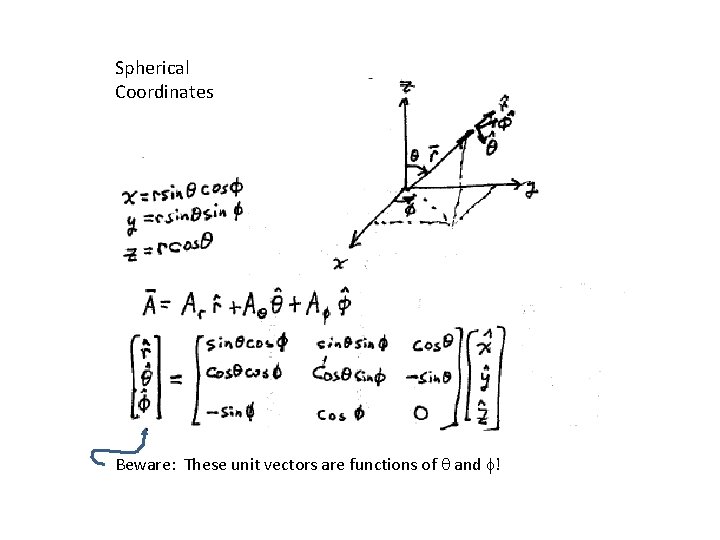 Spherical
Coordinates
z
r̂
ϕ̂
θ̂
θ r̄
y
ϕ
x
x = r sinθ cosϕ
y = r sinθ sin ϕ
z = r cosθ
Ā = A_r r̂ + A_θ θ̂ + A_ϕ ϕ̂
[r̂ θ̂ ϕ̂] = [sinθ cos ϕ sinθ sin ϕ cosθ
cosθ cos ϕ cosθ sin ϕ -sinθ
-sin ϕ cos ϕ 0] [x̂ ŷ ẑ]
Beware: These unit vectors are functions of θ and ϕ!